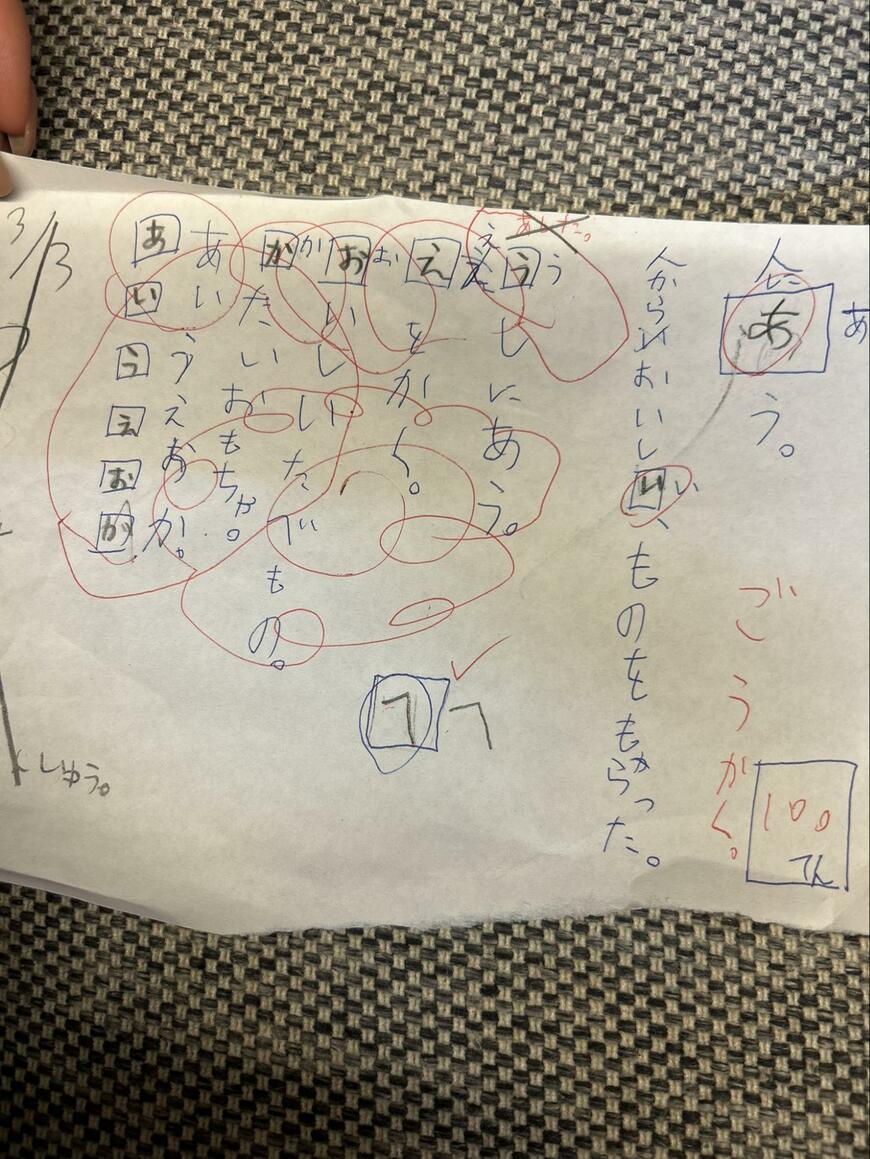 あ
人に あ う。
ごうがく。
100
てん
人からいおいしい い、ものをもらった。
か
う
うしにあう。
ええ
えをかく。
お
おいしいたべもの。
か
かたいおもちゃ。
あいうえおか。
あいうえおか
へ へ
3/3
しゅう。